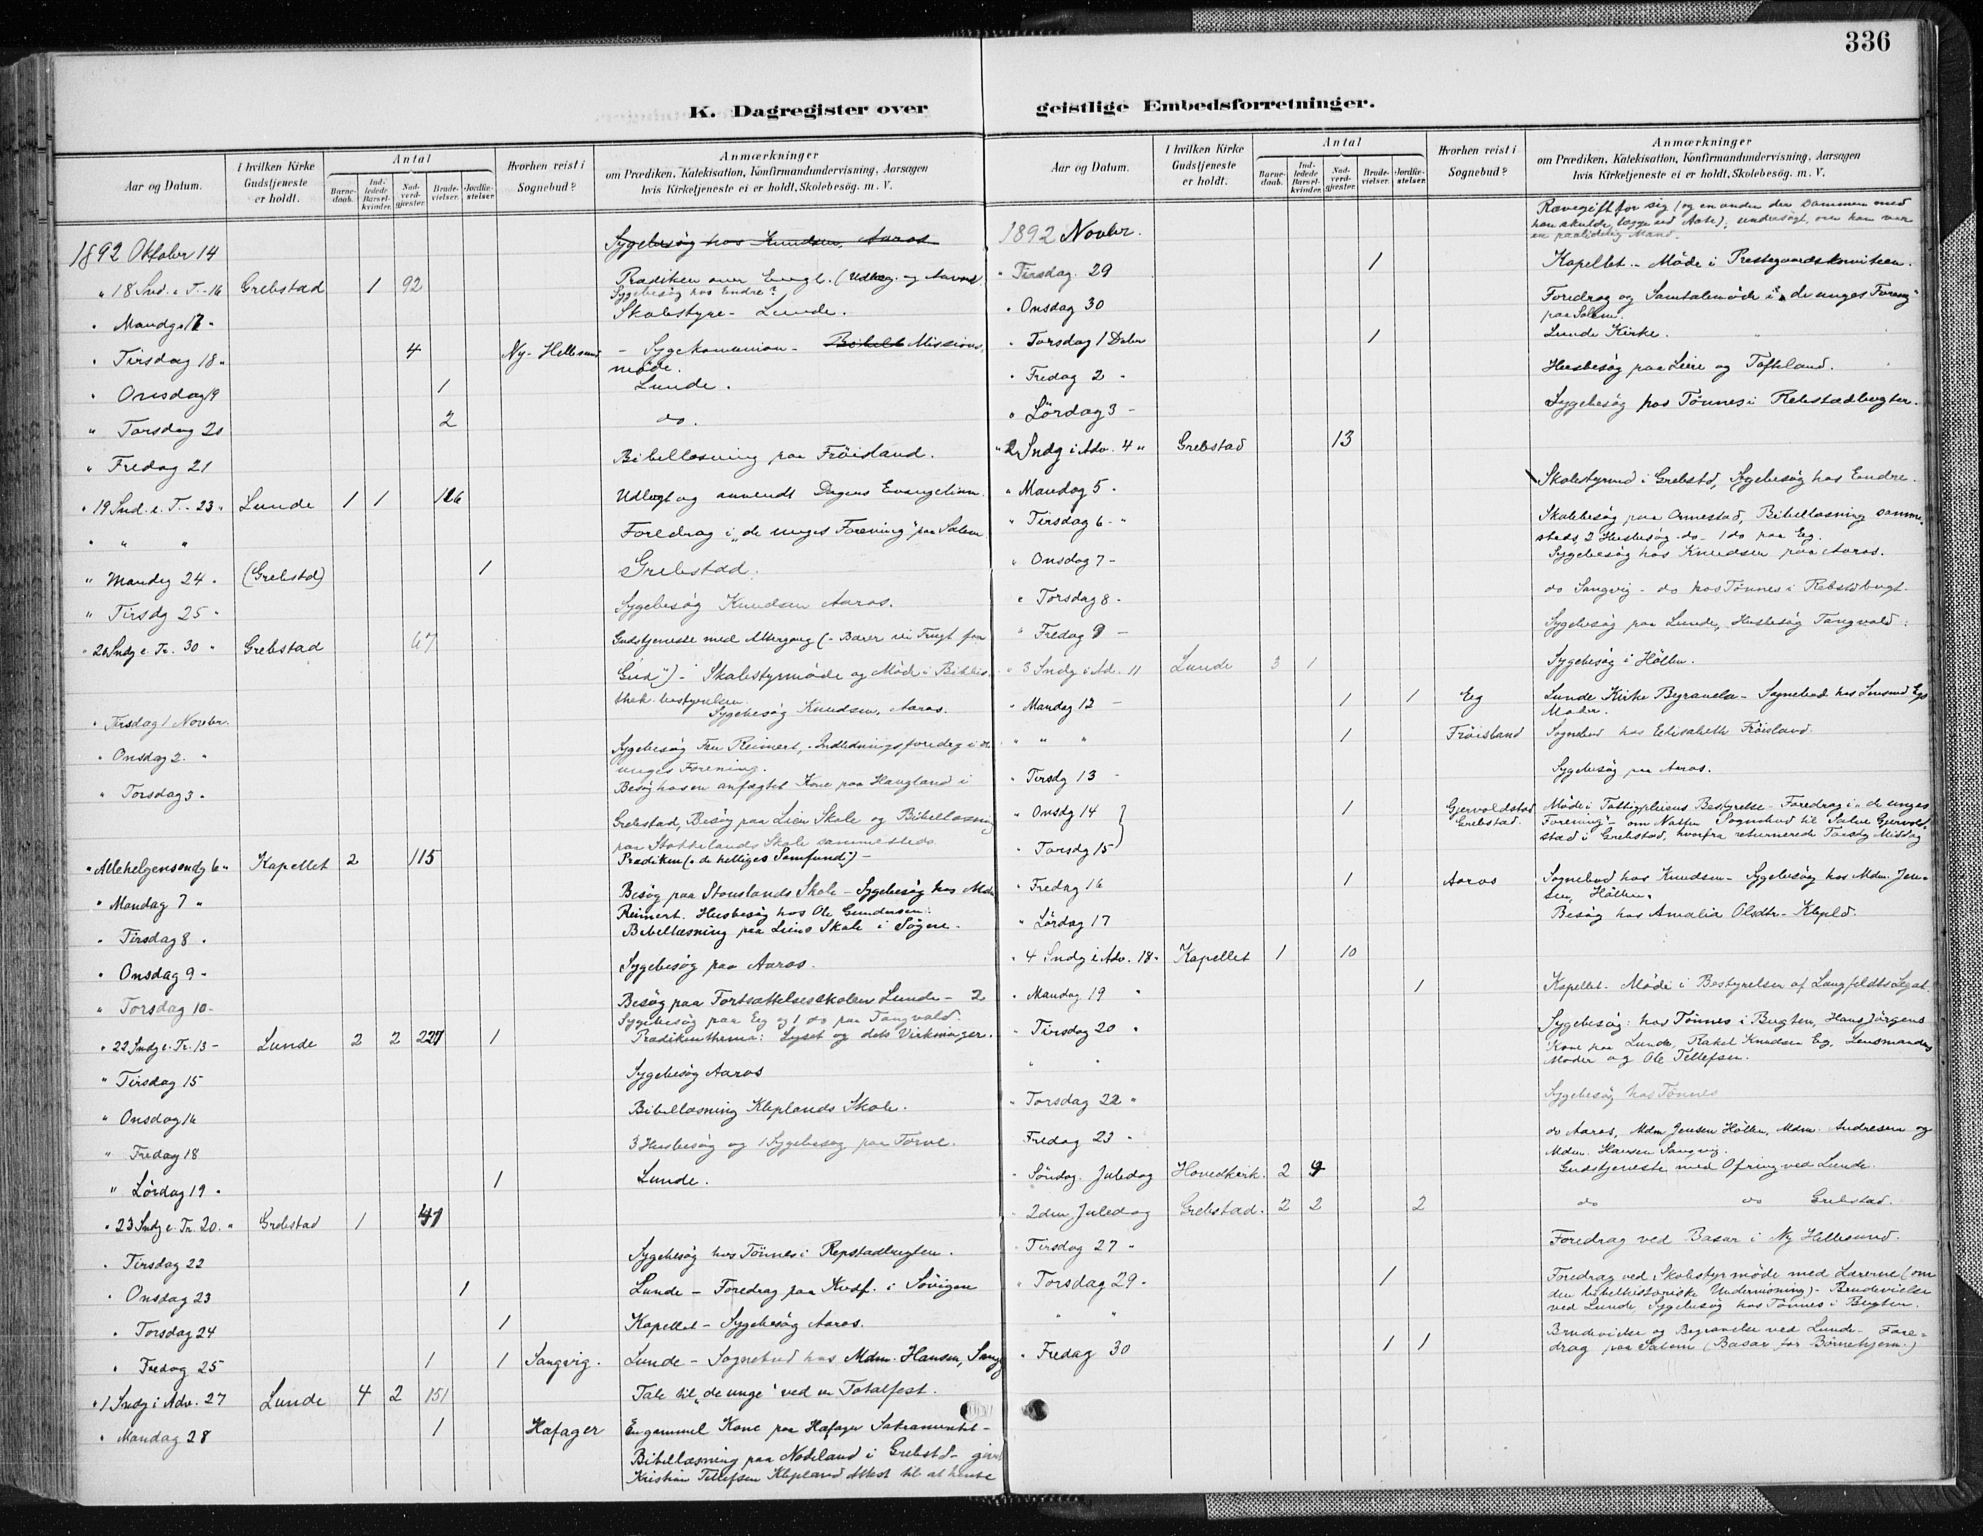 336
K. Dagregister over geistlige Embedsforretninger.
Aar og Datum. I hvilken Kirke Gudstjeneste er holdt. Antal Barnedaab. Indledede Barselkvinder. Nadverdgjester. Brudevielser. Jordfæstelser. Hvorhen reist i Sognebud? Anmærkninger om Prædiken, Katekisation, Konfirmandundervisning, Aarsagen hvis Kirketjeneste ei er holdt, Skolebesög. m. V.
1892 Oktober 14 Sygebesøg hos Knudsen, Aaros
" 18 Snd. e. T. - 16 Grebstad 1 92 Prædiken over Evngl. (Udlæg. og Anvend
Sygebesøg hos Endre?
" Mandg 17 " Skolestyre - Lunde.
" Tirsdag 18 " 4 Ny-Hellesund - Sygekomunion - Bibell Missions
møde.
" Onsdag 19 1 Lunde.
" Torsdag 20 2 do.
" Fredag 21 Bibellæsning paa Fröisland.
" 19 Snd. e. T. - 23 " Lunde 1 1 116 Udlagt og anvendt Dagens Evangelium.
" " " Foredrag i "de unges Forening" paa Salem
" Mandg 24 " (Grebstd) 1 Grebstad.
" Tirsdg 25 " Sygebesøg Knudsen Aaros.
" 20 Sndg e. Tr. 30 " Grebstad 67 Gudstjeneste med Altergang (- Bærer vi Frugt for
Gud") - Skolestyrmøde og Møde i Biblio-
thek-bestyrelsen.
" Tirsdag 1 Novbr. Sygebesøg Knudsen, Aaros.
" Onsdag 2 " Sygebesøg Fru Reinert, - Indledningsforedrag i de
unges Forening.
" Torsdag 3 " Besøg hos en anfægtet Kone paa Haugland i
Grebstad, Besøg paa Lien Skole og Bibellæsning
paa Stokkelands Skole sammesteds.
" Allehelgensondg 6 " Kapellet 2 115 Prædiken (" de helliges Samfund") -
" Mandag 7 " Besøg paa Stouslands Skole - Sygebesøg hos Mdm
Reinert. Husbesøg hos Ole Gundersen.
" Tirsdag 8 " Bibellæsning paa Liens Skole i Søgne.
" Onsdag 9 " Sygebesøg paa Aaros.
" Torsdag 10 - Besøg paa Fortsættelsesskolen Lunde - 2
Sygebesøg paa Eg og 1 do paa Tangvald.
" 22 Sndg e. Tr. 13 - Lunde 2 2 227 1 Prædikenthema: Lyset og dets Virkninger.
" Tirsdag 15 Sygebesøg Aaros
" Onsdag 16 Bibellæsning Kleplands Skole.
" Fredag 18 3 Husbesøg og 1 Sygebesøg paa Torve.
" Lördag 19 " 1 Lunde.
" 23 Sndg e. Tr. 20. " Grebstad 1 41
" Tirsdag 22 Sygebesøg hos Tönnes i Repstadbugten.
" Onsdag 23 1 Lunde - Foredrag paa Kvdf. i Søvigen
" Torsdag 24 1 Kapellet - Sygebesøg Aaros.
" Fredag 25 1 1 Sangvig. Lunde - Sognebud hos Mdm. Hansen, Sangv
" 1 Sndg i Adv. 27 Lunde 4 2 151 Tale til "de unge" ved en Totalfest.
" Mandag 28 1 Hafager En gammel Kone paa Hafager Sakramentet -
Bibellæsning paa Nodeland i Grebstd - givet
Kristian Tellefsen Klepland Attest til at hente
Aar og Datum. I hvilken Kirke Gudstjeneste er holdt. Antal Barnedaab. Indledede Barselkvinder. Nadverdgjester. Brudevielser. Jordfæstelser. Hvorhen reist i Sognebud? Anmærkninger om Prædiken, Katekisation, Konfirmandundervisning, Aarsagen hvis Kirketjeneste ei er holdt, Skolebesög. m. V.
Rævegift for sig (og en anden der sammen med
ham skulde lægge ud Aate), undersøgt, om han var
en paalidelig Mand.
1892 Novbr.
" Tirsdag 29 1 Kapellet - Møde i Prestegaardskomiteen.
" Onsdag 30 Foredrag og Samtalemøde i "de unges Foreng"
paa Salem.
" Torsdag 1 Decbr 1 Lunde Kirke.
" Fredag 2 " Husbesøg paa Leire og Toftland.
" Lördag 3 - Sygebesøg hos Tönnes i Rebstadbugten.
" 2 Sndg i Adv. 4 " Grebstad 13
" Mandag 5 " Skolestyrmd i Grebstd, Sygebesøg hos Endre.
" Tirsdag 6 - " Skolebesøg paa Omestad, Bibellæsning samme-
steds, 2 Husbesøg do - 1 do paa Eg.
" Onsdag 7 - Sygebesøg hos Knudsen paa Aaros.
" Torsdag 8 - do Sangvig - do hos Tönnes i Rebstdbugt.
" Fredag 9 - Sygebesøg paa Lunde, Husbesøg Tangvald.
" 3 Sndg i Ad. 11 Lunde 3 1 Sygebesøg i Höllen.
" Mandag 12 - 1 1 Eg Lunde Kirke Begravelse - Sognebud hos Lensmd Egs
Moder.
" " " 1 Fröisland Sognebud hos Elisabeth Fröisland.
" Tirsdg 13 - Sygebesøg paa Aaros.
" Onsdg 14 1 Gjervoldstad Grebstad. Møde i Fattigpleiens Bestyrelse - Foredrag i "de unges
Forening" - om Natten Sognebud til Salve Gjervold-
" Torsdg 15 stad i Grebstad, hvorfra returnerede Torsdg Middag
" Fredag 16 1 Aaros Sognebud hos Knudsen - Sygebesøg hos Mdm. Jen-
sen, Höllen.
" Lördag 17 Besøg hos Amalia Olsdtr - Klepld.
" 4 Sndg i Adv. 18 " Kapellet 1 10
" Mandag 19 " 1 Kapellet - Møde i Bestyrelsen af Langfeldts Legat.
" Tirsdag 20 " Sygebesøg: hos Tönnes i Bugten, Hans Jörgens
Kone paa Lunde, Rakel Knudsen Eg, Lensmandens
" Moder og Ole Tellefsen.
" Torsdag 22 " Sygebesøg hos Tönnes
Fredag 23 " do Aaros, Mdm Jensen Höllen, Mdm. Andresen og
Mdm. Hansen Sangvig.
" Söndag. Juledag Hovedkirk. 2 Gudstjeneste med Ofring ved Lunde.
" 2den Juledag Grebstad. 2 2 2 do do Grebstad.
" Tirsdag 27 " Foredrag ved Basar i Ny Hellesund.
" Torsdag 29 " 1 Foredrag ved Skolestyrmøde med Lærerne (om
den bibelhistoriske Undervisning) - Brudevielse
" ved Lunde, Sygebesøg hos Tönnes i Bugten.
" Fredag 30 1 1 Brudevielse og Begravelse ved Lunde - Fore-
drag paa Salem (Basar for Børnehjem.)